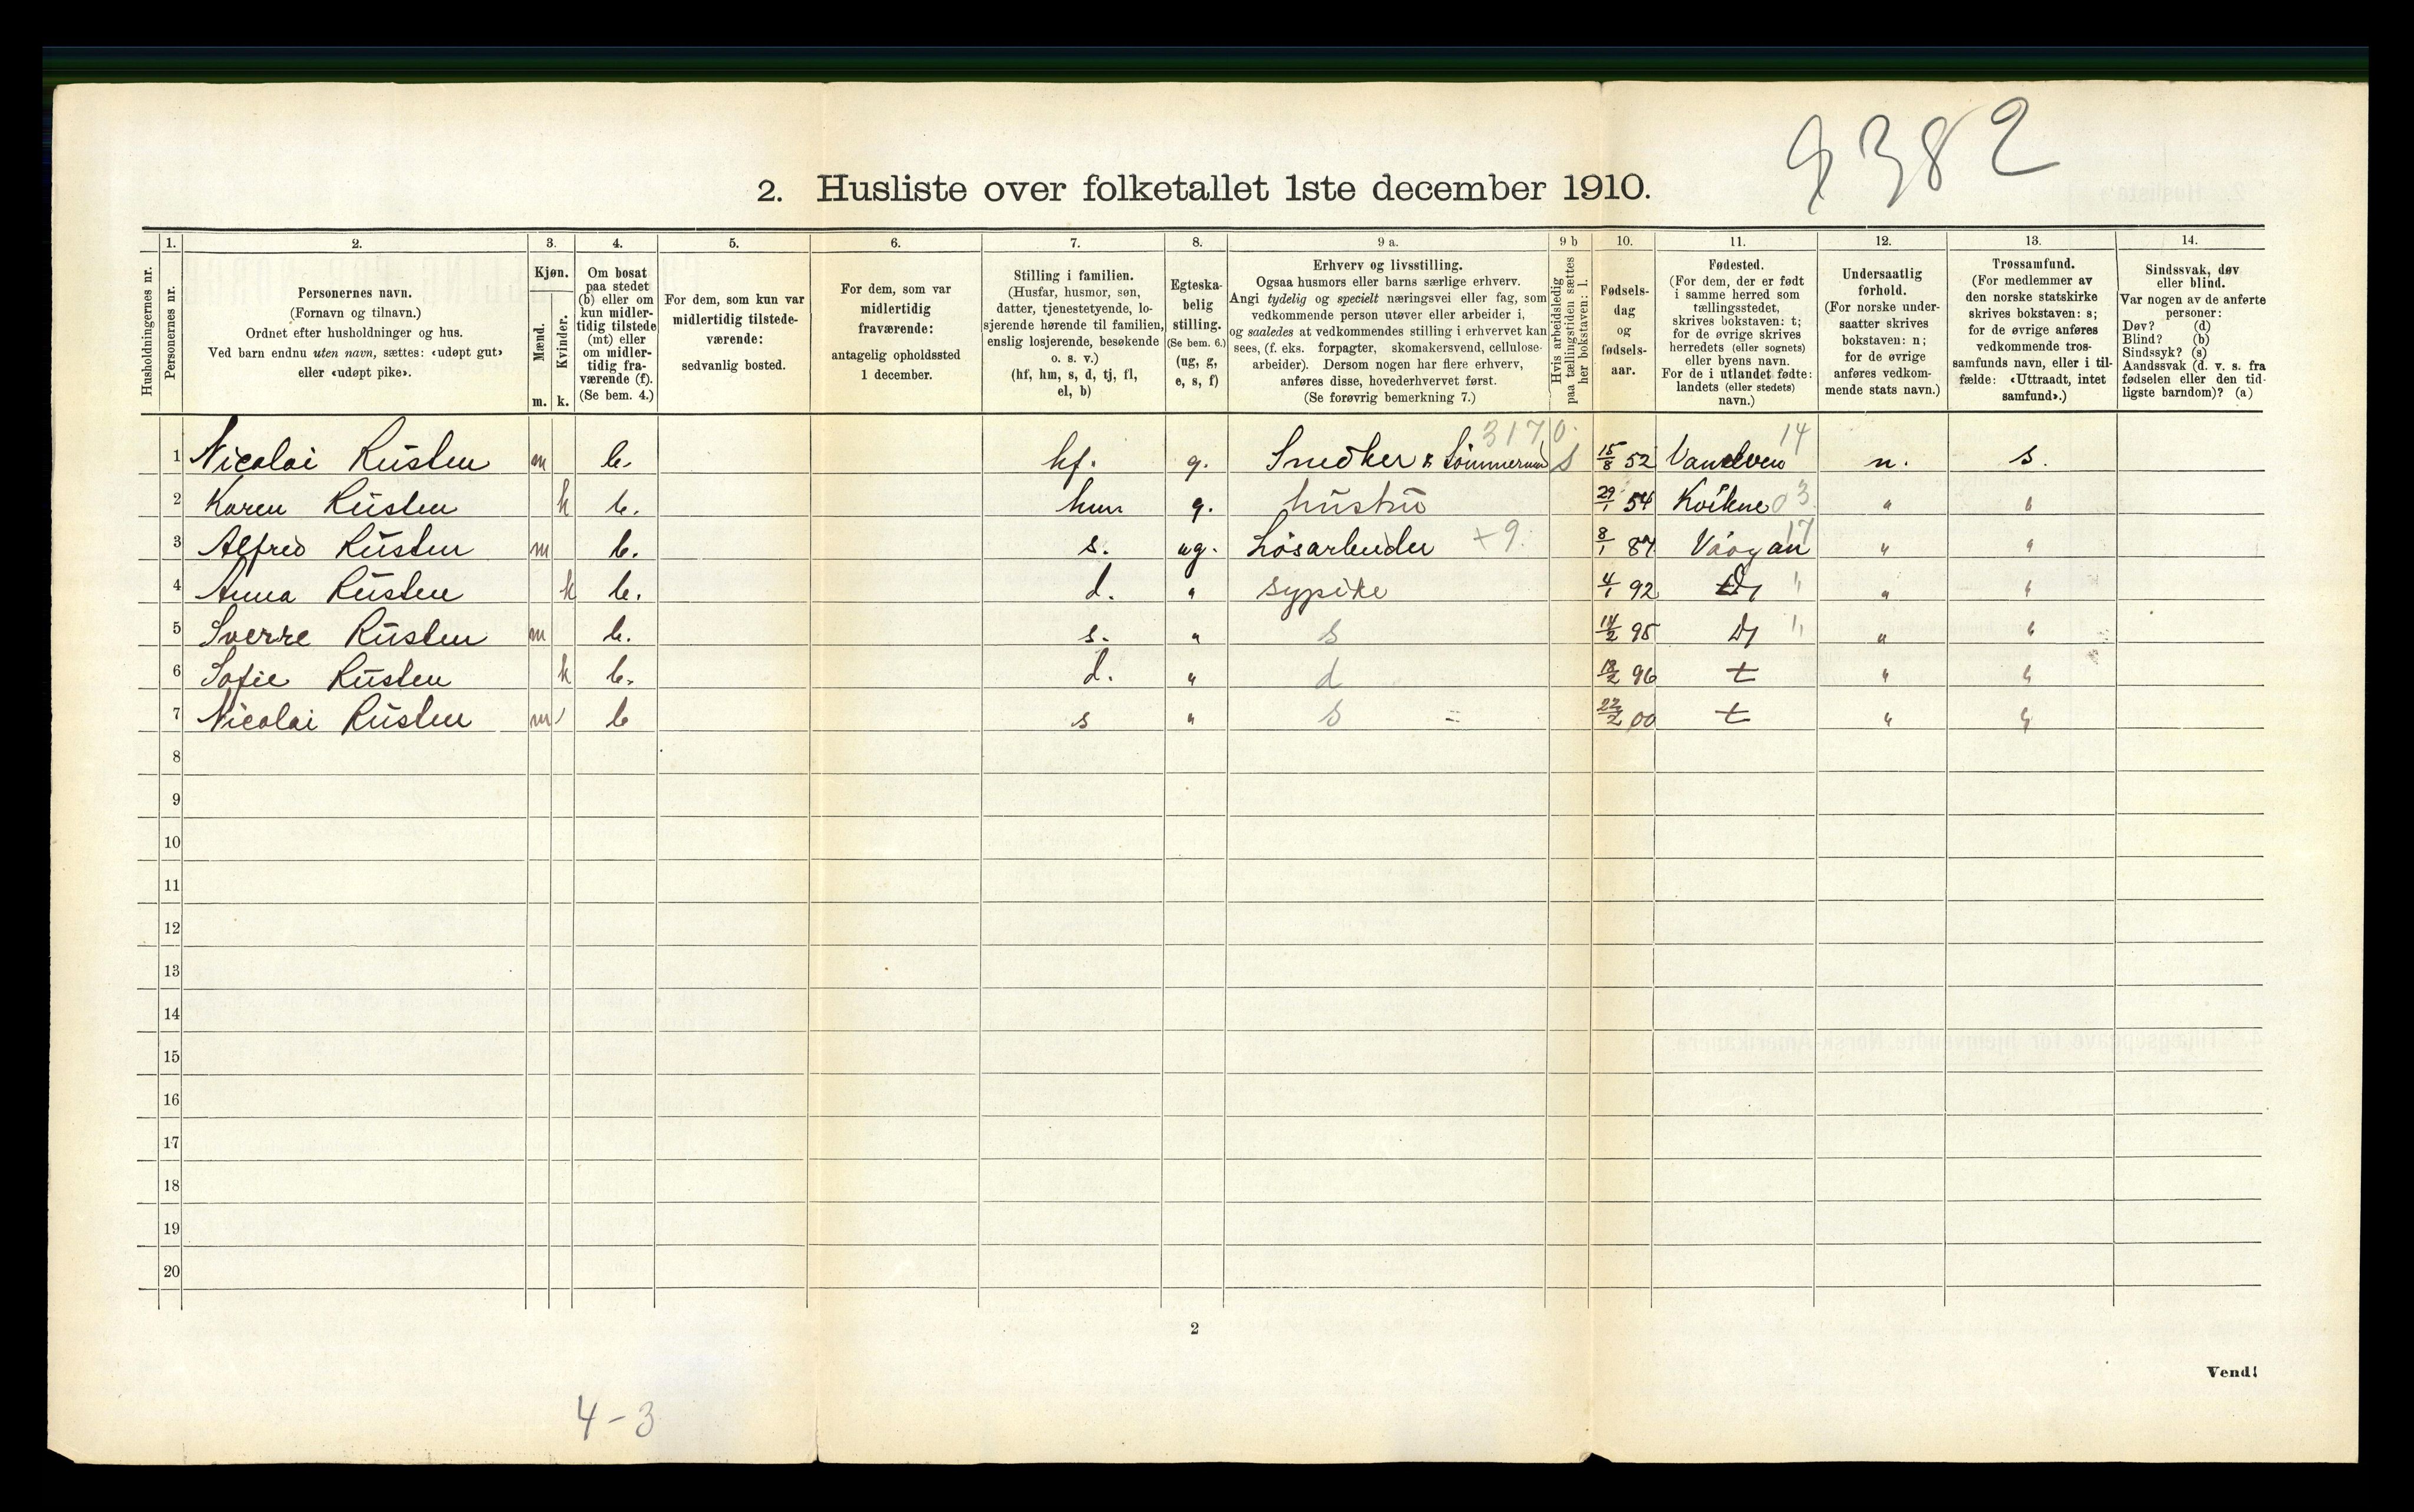 9382
2. Husliste over folketallet 1ste december 1910.
Husholdningernes nr.
1.
Personernes nr.
2.
Personernes navn.
(Fornavn og tilnavn.)
Ordnet efter husholdninger og hus.
Ved barn endnu uten navn, sættes: «udøpt gut»
eller «udøpt pike».
3.
Kjøn.
Mænd.
Kvinder.
m. k.
4.
Om bosat
paa stedet
(b) eller om
kun midler-
tidig tilstede
(mt) eller
om midler-
tidig fra-
værende (f).
(Se bem. 4.)
5.
For dem, som kun var
midlertidig tilstede-
værende:
sedvanlig bosted.
6.
For dem, som var
midlertidig
fraværende:
antagelig opholdssted
1 december.
7.
Stilling i familien.
(Husfar, husmor, søn,
datter, tjenestetyende, lo-
sjerende hørende til familien,
enslig losjerende, besøkende
o. s. v.)
(hf, hm, s, d, tj, fl,
el, b)
8.
Egteska-
belig
stilling.
(Se bem. 6.)
(ug, g,
e, s, f)
9 a.
Erhverv og livsstilling.
Ogsaa husmors eller barns særlige erhverv.
Angi tydelig og specielt næringsvei eller fag, som
vedkommende person utøver eller arbeider i,
og saaledes at vedkommendes stilling i erhvervet kan
sees, (f. eks. forpagter, skomakersvend, cellulose-
arbeider). Dersom nogen har flere erhverv,
anføres disse, hovederhvervet først.
(Se forøvrig bemerkning 7.)
9 b
Hvis arbeidsledig
paa tællingstiden sættes
her bokstaven: l.
10.
Fødsels-
dag
og
fødsels-
aar.
11.
Fødested.
(For dem, der er født
i samme herred som
tællingsstedet,
skrives bokstaven: t;
for de øvrige skrives
herredets (eller sognets)
eller byens navn.
For de i utlandet fødte:
landets (eller stedets)
navn.)
12.
Undersaatlig
forhold.
(For norske under-
saatter skrives
bokstaven: n;
for de øvrige
anføres vedkom-
mende stats navn.)
13.
Trossamfund.
(For medlemmer av
den norske statskirke
skrives bokstaven: s;
for de øvrige anføres
vedkommende tros-
samfunds navn, eller i til-
fælde: «Uttraadt, intet
samfund».)
14.
Sindssvak, døv
eller blind.
Var nogen av de anførte
personer:
Døv? (d)
Blind? (b)
Sindssyk? (s)
Aandssvak (d. v. s. fra
fødselen eller den tid-
ligste barndom)? (a)
3170. 14
1 Nicolai Rusten m b. hf. g. Snedker & Tömmermand S 15/8 52 Vanelven n. s.
2 Karen Rusten k b. hm g. hustru 29/1 54 Kvikne 03 " "
3 Alfred Rusten m b. s. ug. Lösarbeider +9. 8/1 87 Vaagan 17 " "
4 Anna Rusten k b. d. " sypike 4/1 92 " " "
5 Sverre Rusten m b. s. " s 14/2 95 " " "
6 Sofie Rusten k b. d. " d 18/2 96 t " "
7 Nicolai Rusten m b s " s 22/2 00 t " "
8
9
10
11
12
13
14
15
16
17
18
19
20
2
Vend!
4-3